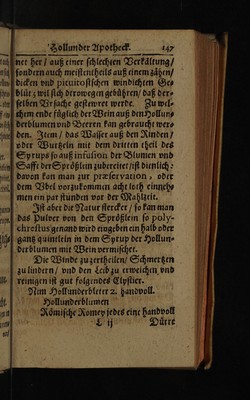 Hollunder Apotheck. 147
net her / auß einer schlechten Verkältung /
sondern auch meistentheils auß einem zähen /
dicken und pituitosischen windichten Ge-
blüt ; wil sich derowegen gebühren / daß der-
selben Ursache gesteuret werde. Zu wel-
chem ende füglich der Wein auß den Hollun-
derblumen und Beeren kan gebraucht wer-
den. Item / das Wasser auß den Rinden /
oder Wurtzeln mit dem dritten theil des
Syrups so auß infusion der Blumen und
Safft der Sprößlein zubereitet / ist dienlich:
davon kan man zur præservation, oder
dem Übel vorzukommen acht loth einneh-
men ein par stunden vor der Mahlzeit.
Ist aber die Natur stercker / so kan man
das Pulver von den Sprößlein so poly-
chrestus genand wird eingeben ein halb oder
gantz quintlein in dem Syrup der Hollun-
derblumen mit Wein vermischet.
Die Winde zu zertheilen / Schmertzen
zu lindern / und den Leib zu erweichen und
reinigen ist gut folgendes Clystier.
Nim Hollunderbleter 2. handvoll.
Hollunderblumen
Römische Romey jedes eine handvoll
L ij Dürre